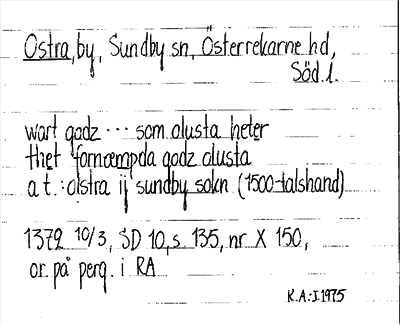 Ostra, by, Sundby sn, Österrekarne hd,
Söd. l.
wart godz ... som olusta heter
thet fornæmpda godz olusta
a t.: olstra ij sundby sokn (1500-talshand)
1372 10/3, SD 10, s 135, nr X 150,
or. på perg. i RA
K.A:I.1975